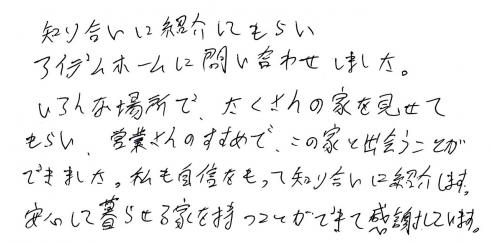 知り合いに紹介してもらい
アイデムホームに問い合わせしました。
いろんな場所で、たくさんの家を見せて
もらい、営業さんのすすめで、この家と出会うことが
できました。私も自信をもって知り合いに紹介します。
安心して暮らせる家を持つことができて感謝しています。